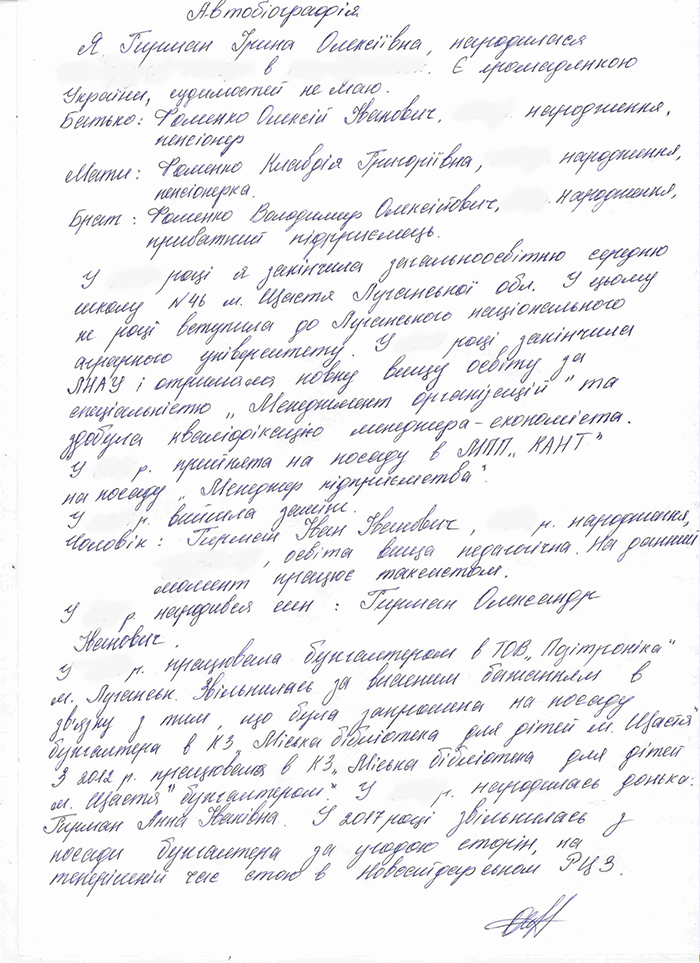 Автобіографія
Я, Гирман Ірина Олексіївна, народилася
в . Є громадянкою
України, судимостей не маю.
Батько: Фоменко Олексій Іванович, народження,
пенсіонер
Мати: Фоменко Клавдія Григоріївна, народження,
пенсіонерка.
Брат: Фоменко Володимир Олексійович, народження,
приватний підприємець.
У році я закінчила загальноосвітню середню
школу №46 м. Щастя Луганської обл. У цьому
ж році вступила до Луганського національного
аграрного університету. У році закінчила
ЛНАУ і отримала повну вищу освіту за
спеціальністю „Менеджмент організацій" та
здобула кваліфікацію менеджера-економіста.
У р. прийнята на посаду в МПП „КАНТ"
на посаду „Менеджер підприємства".
У р. вийшла заміж.
Чоловік: Гирман Іван Іванович, р. народження,
, освіта вища педагогічна. На данний
момент працює таксистом.
У р. народився син: Гирман Олександр
Іванович.
У р. працювала бухгалтером в ТОВ „Позітроніка"
м. Луганськ. Звільнилась за власним бажанням в
зв'язку з тим, що була запрошена на посаду
бухгалтера в КЗ „Міська бібліотека для дітей м. Щастя"
З 2012 р. працювала в КЗ „Міська бібліотека для дітей
м. Щастя" бухгалтером". У р. народилась донька:
Гирман Анна Іванівна. У 2017 році звільнилась з
посади бухгалтера за угодою сторін, на
теперішній час стою в Новоайдарськом РЦЗ.